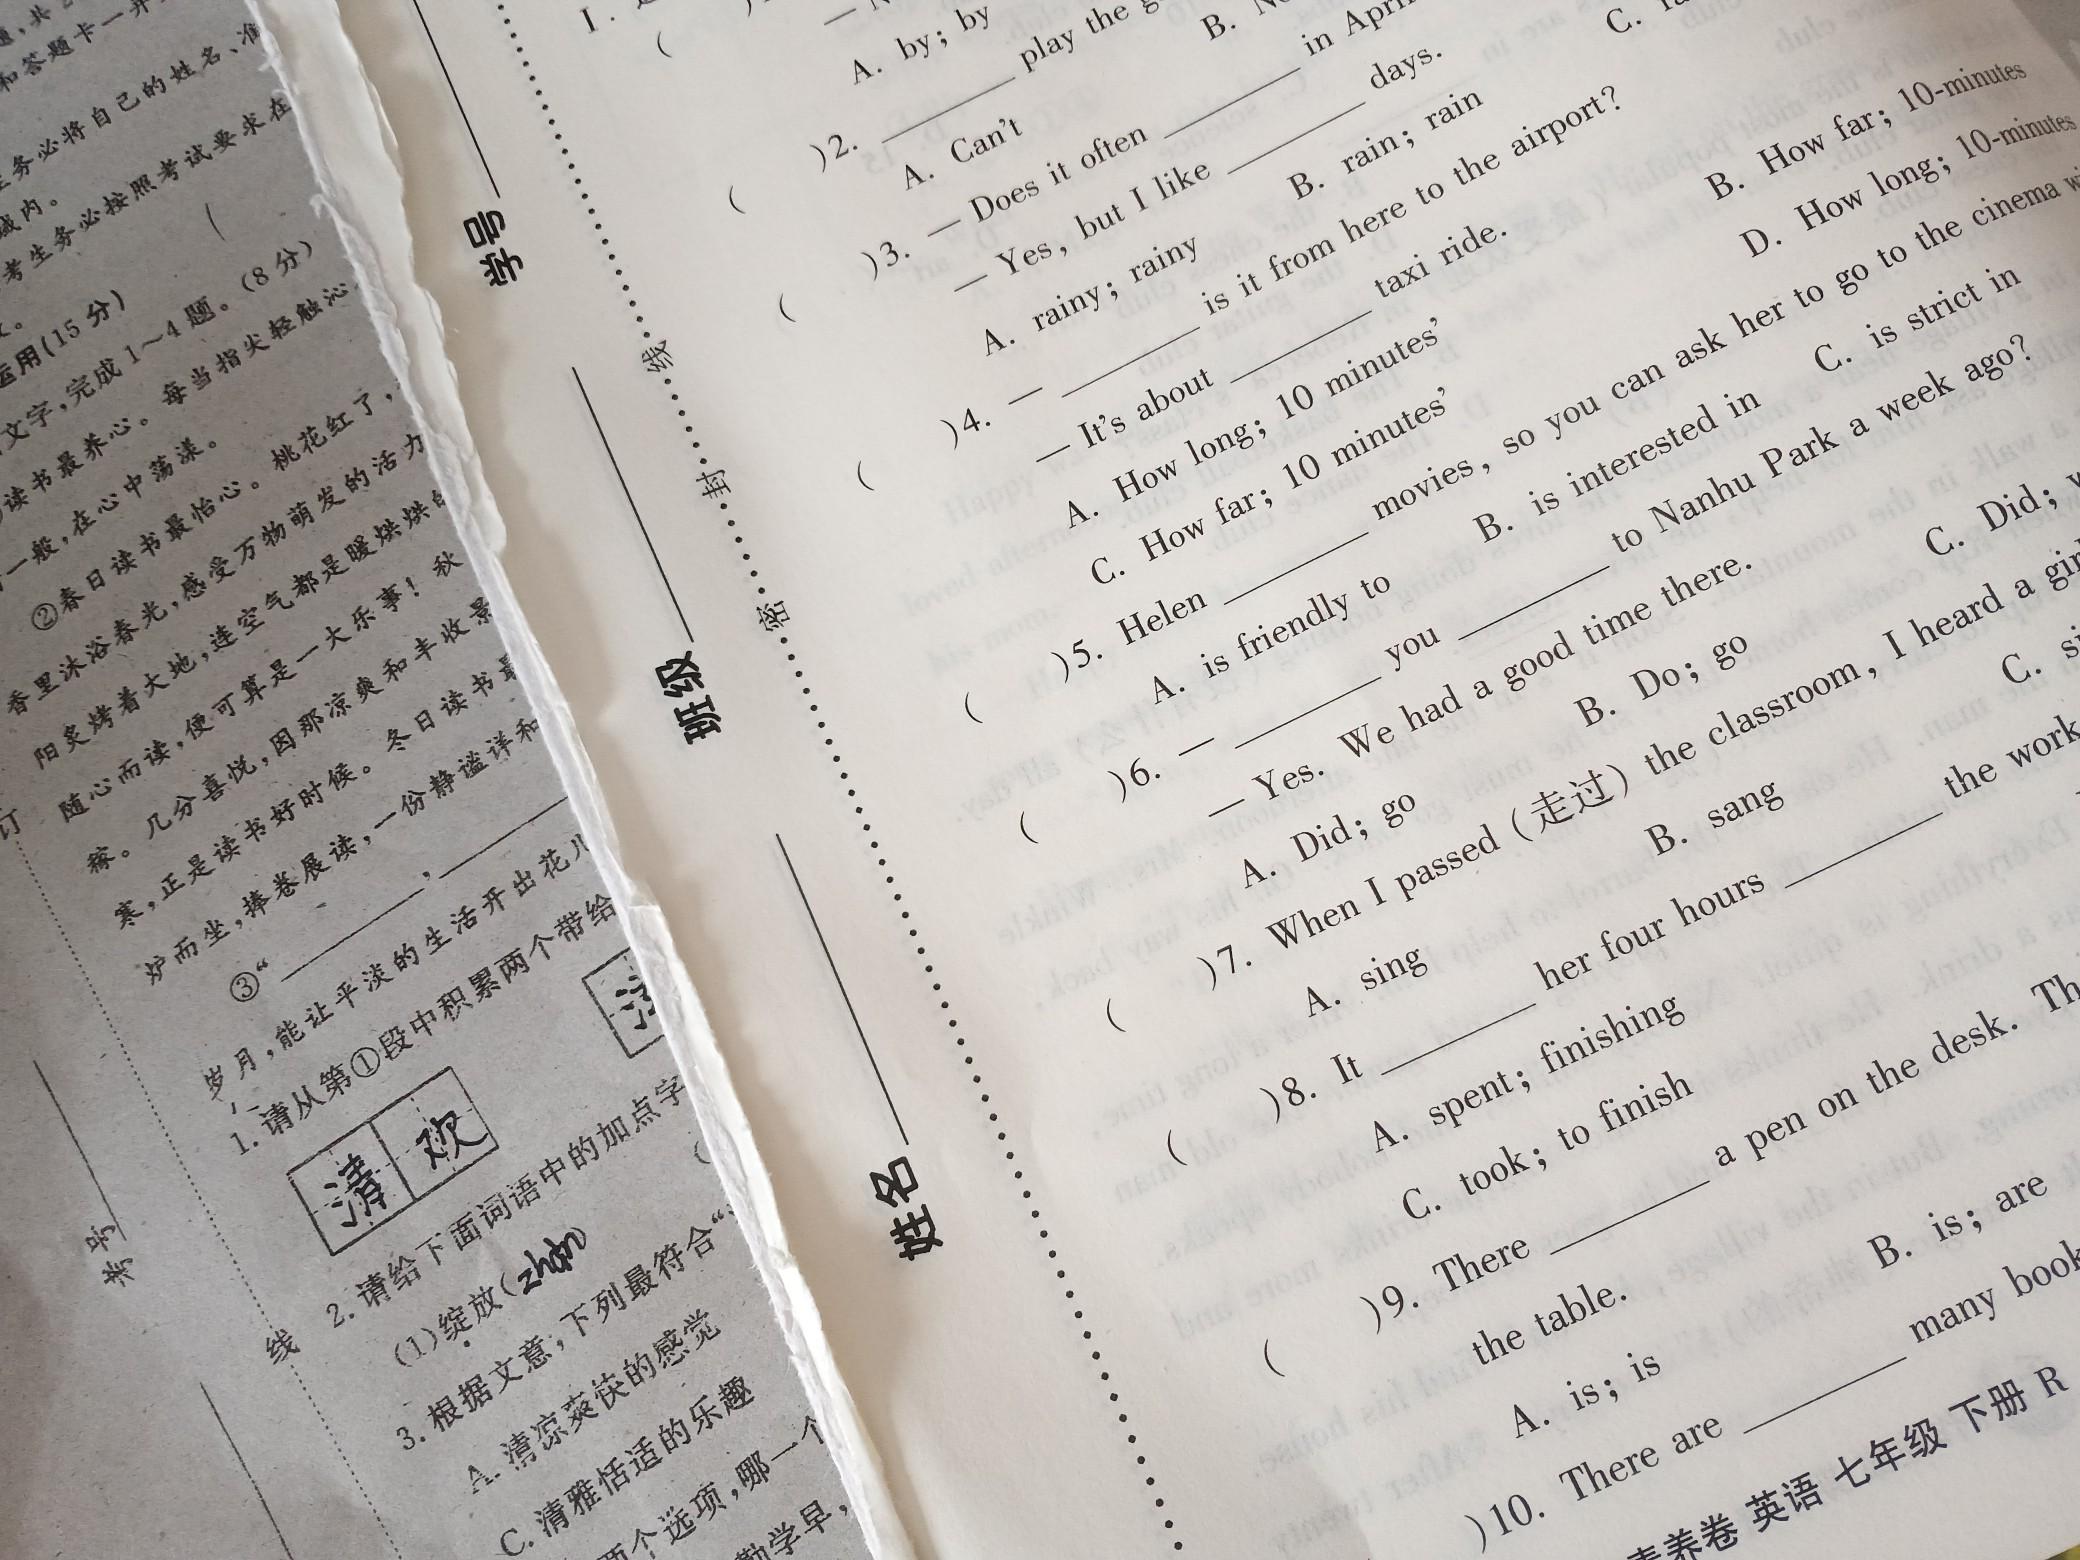 和答题卡一并
务必将自己的姓名、准
域内。
考生务必按照考试要求在
运用(15分)
文字,完成1～4题。(8分)
读书最养心。每当指尖轻触沁
一般,在心中荡漾。
②春日读书最怡心。桃花红了,
香里沐浴春光,感受万物萌发的活力
阳炙烤着大地,连空气都是暖烘烘的
随心而读,便可算是一大乐事!秋
稼。几分喜悦,因那凉爽和丰收景
寒,正是读书好时候。冬日读书最
炉而坐,捧卷展读,一份静谧详和
③“________,________
岁月,能让平淡的生活开出花儿
1.请从第①段中积累两个带给
清欢
2.请给下面词语中的加点字
(1)绽放(zhàn)
3.根据文意,下列最符合“
A.清凉爽筷的感觉
C.清雅恬适的乐趣
两个选项,哪一个
勤学早,
订
线
考号
学号
班级
姓名
线
封
密
1.
A. by; by
( )2. ________ play the
A. Can't
B.
( )3. — Does it often ________ in April
— Yes, but I like ________ days.
A. rainy; rainy
B. rain; rain
C.
( )4. — ________ is it from here to the airport?
— It's about ________ taxi ride.
A. How long; 10 minutes'
B. How far; 10-minutes
C. How far; 10 minutes'
D. How long; 10-minutes
( )5. Helen ________ movies, so you can ask her to go to the cinema
A. is friendly to
B. is interested in
C. is strict in
( )6. — ________ you ________ to Nanhu Park a week ago?
— Yes. We had a good time there.
A. Did; go
B. Do; go
C. Did;
( )7. When I passed (走过) the classroom, I heard a girl
A. sing
B. sang
C.
( )8. It ________ her four hours ________ the work
A. spent; finishing
C. took; to finish
( )9. There ________ a pen on the desk.
the table.
A. is; is
B. is; are
( )10. There are ________ many book
养卷 英语 七年级 下册 R